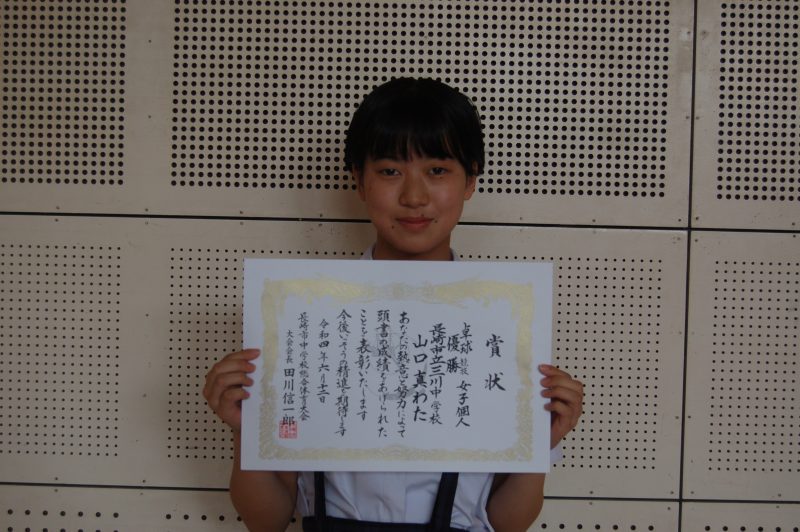 賞状
卓球競技 女子個人
優勝
長崎市立三川中学校
山口真わた
あなたの熱意と努力によって
頭書の成績をあげられた
ことを表彰いたします
今後いっそうの精進を期待します
令和四年六月十二日
長崎市中学校総合体育大会
大会会長 田川信一郎